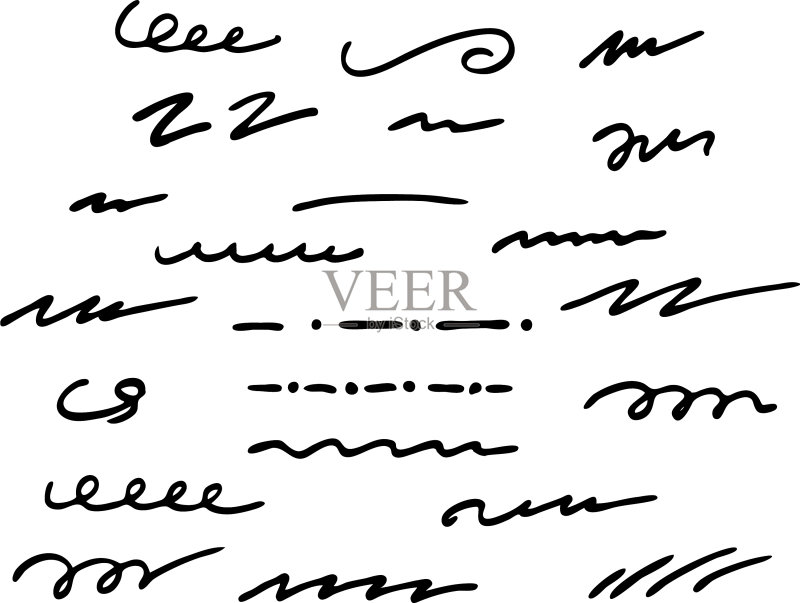 VEER
by iStock